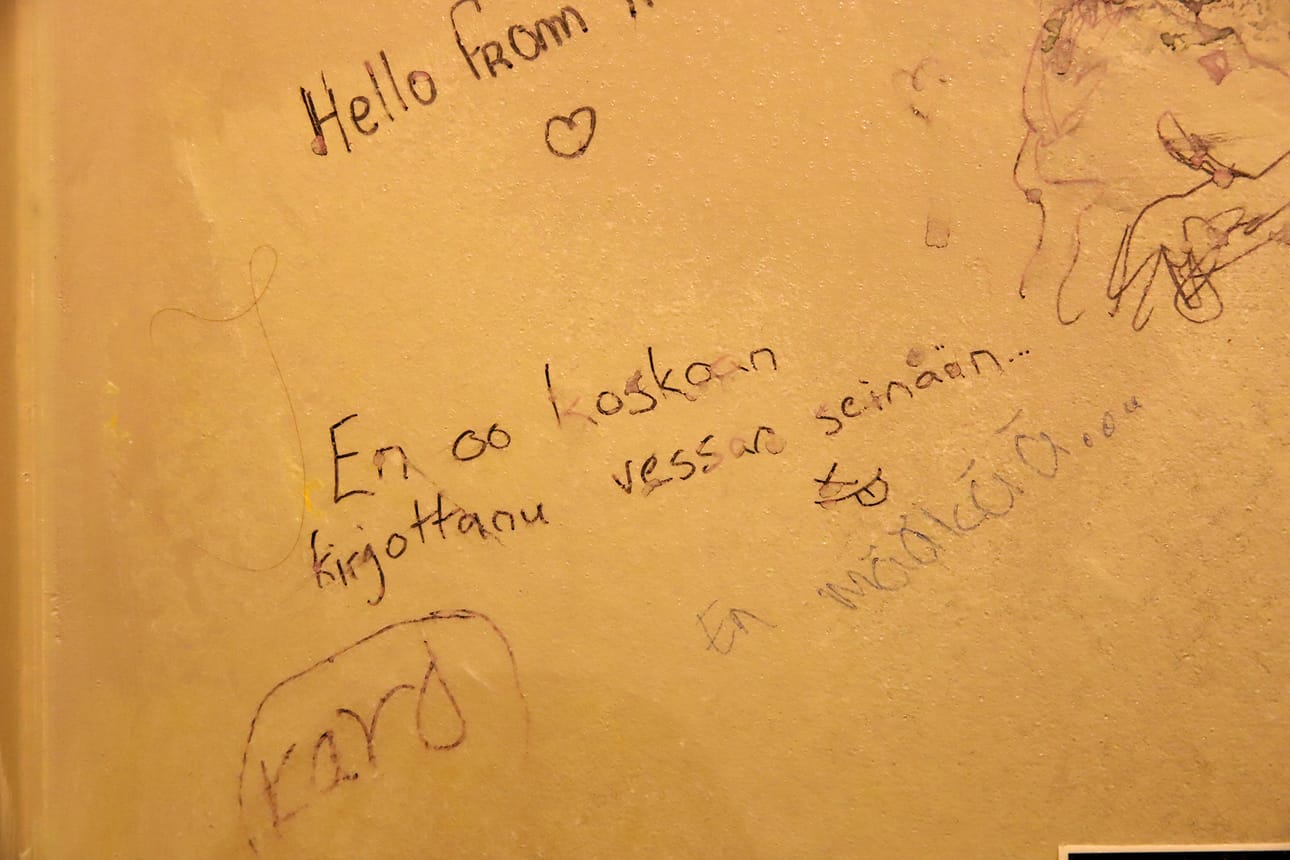 Hello from
En oo koskaan
kirjottanu vessan seinään...
En määkää...